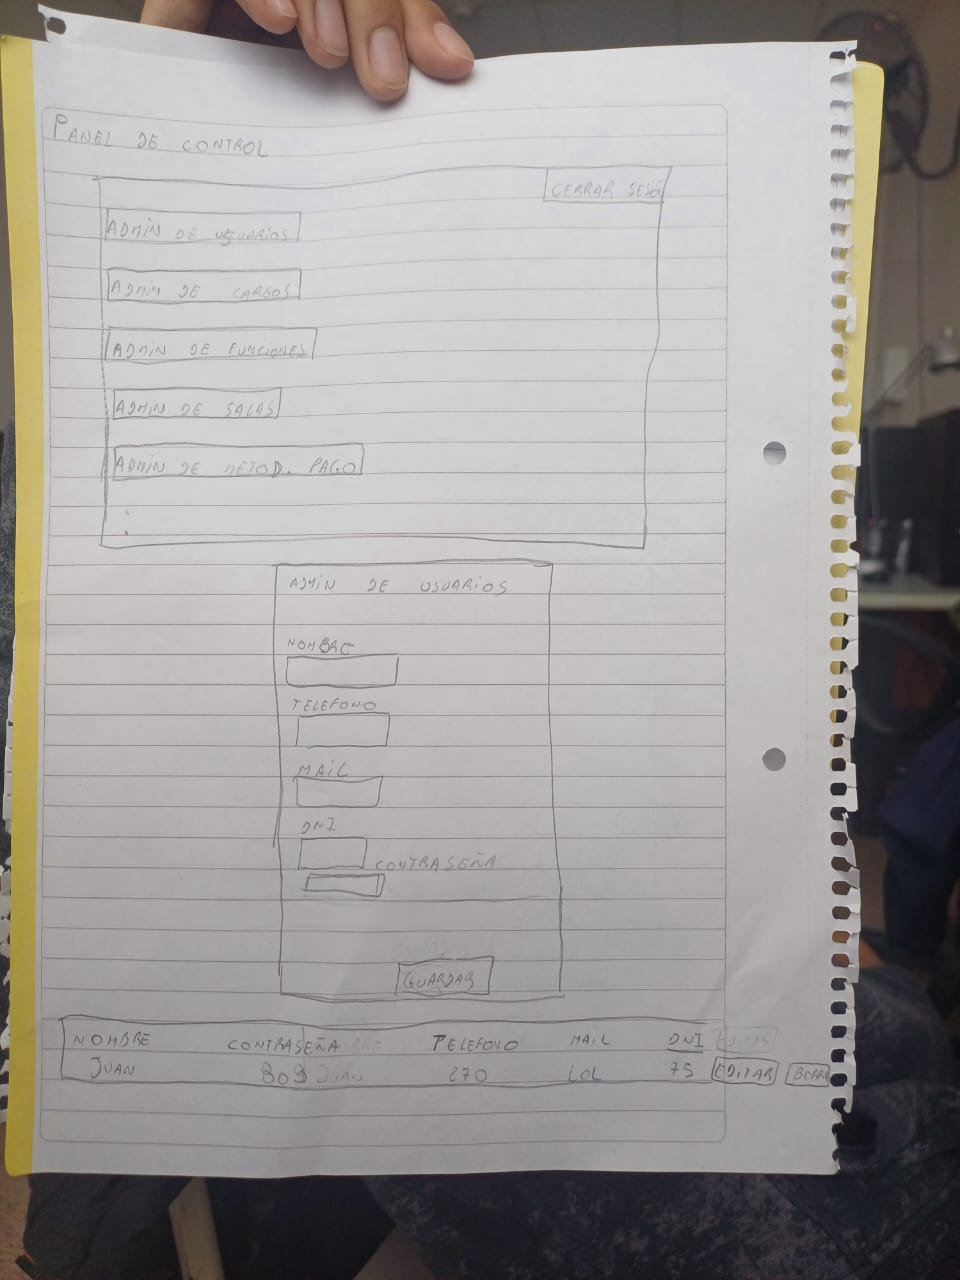 PANEL DE CONTROL
CERRAR SESIÓ
ADMIN DE USUARIOS
ADMIN DE CARGOS
ADMIN DE FUNCIONES
ADMIN DE SALAS
ADMIN DE METOD. PAGO
ADMIN DE USUARIOS
NOMBRE
TELEFONO
MAIL
DNI
CONTRASEÑA
GUARDAR
NOMBRE CONTRASEÑA TELEFONO MAIL DNI EDITAR
JUAN 809 JUAN 270 LOL 75 EDITAR BORR